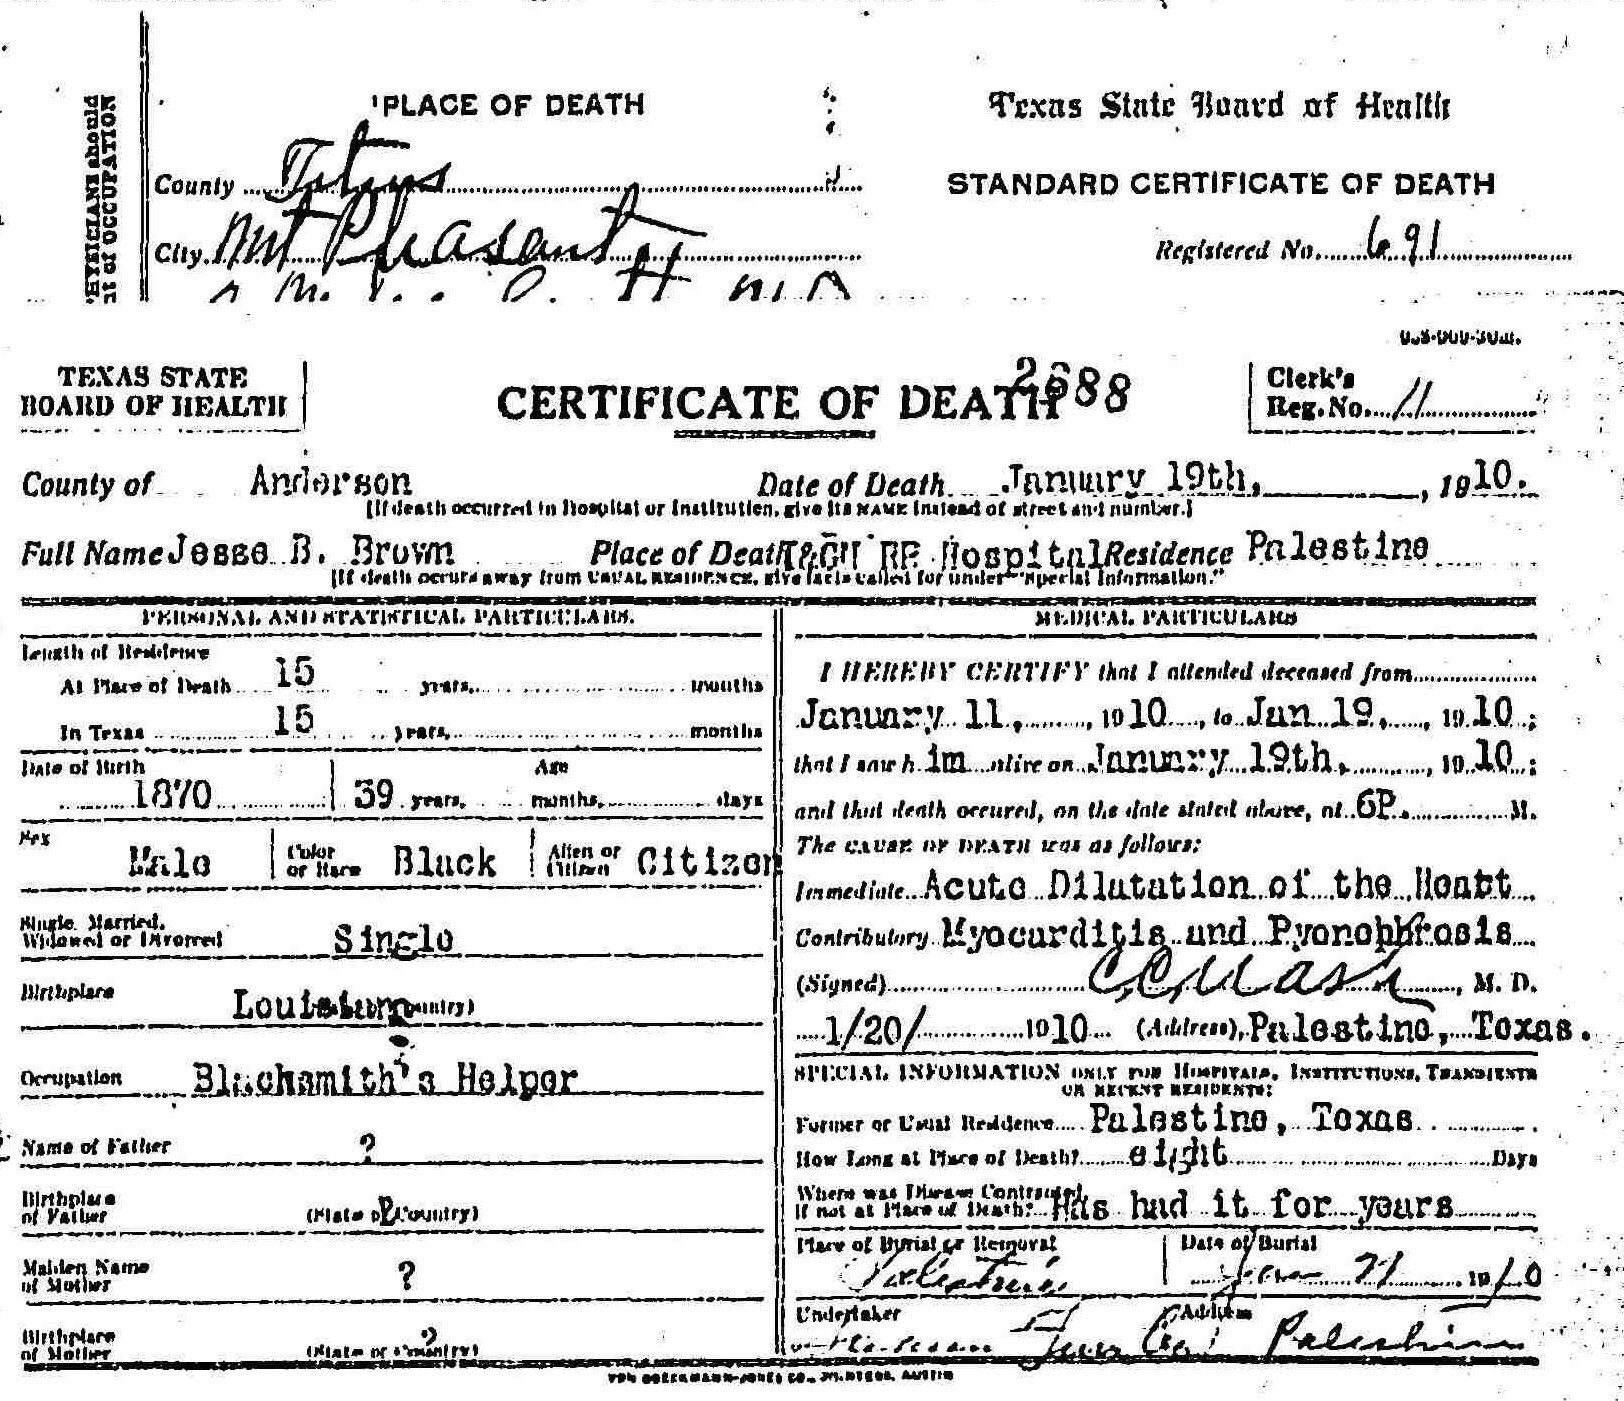 PHYSICIANS should
nt of OCCUPATION
PLACE OF DEATH
Texas State Board of Health
County Titus
STANDARD CERTIFICATE OF DEATH
City Mt Pleasant
Registered No. 691
TEXAS STATE
BOARD OF HEALTH
CERTIFICATE OF DEATH
2688
Clerk's
Reg. No. 11
County of Anderson Date of Death January 19th, , 1910.
[If death occurred in Hospital or Institution, give its NAME instead of street and number.]
Full Name Jesse B. Brown Place of Death I&GN RR Hospital Residence Palestine
[If death occurs away from USUAL RESIDENCE, give facts called for under "Special Information."
PERSONAL AND STATISTICAL PARTICULARS.
Length of Residence
At Place of Death 15 years, months
In Texas 15 years, months
Date of Birth Age
1870 39 years, months, days
Sex Male Color or Race Black Alien or Citizen Citizen
Single, Married,
Widowed or Divorced Single
Birthplace Louisiana
Occupation Blacksmith's Helper
Name of Father ?
Birthplace
of Father (State or Country) ?
Maiden Name
of Mother ?
Birthplace
of Mother (State or Country) ?
MEDICAL PARTICULARS
I HEREBY CERTIFY that I attended deceased from
January 11, , 1910 , to Jan 19, , 1910 ;
that I saw him alive on January 19th, , 1910 ;
and that death occured, on the date stated above, at 6P. M.
The CAUSE OF DEATH was as follows:
Immediate Acute Dilatation of the Heatt
Contributory Myocarditis and Pyonephrosis
(Signed) , M. D.
1/20/ 1910 (Address) Palestine, Texas.
SPECIAL INFORMATION ONLY FOR HOSPITALS, INSTITUTIONS, TRANSIENTS
OR RECENT RESIDENTS:
Former or Usual Residence Palestine, Texas
How Long at Place of Death? eight Days
Where was Disease Contracted
if not at Place of Death? Has had it for years
Place of Burial or Removal Date of Burial
Palestine Jan 21 1910
Undertaker Address
Palestine